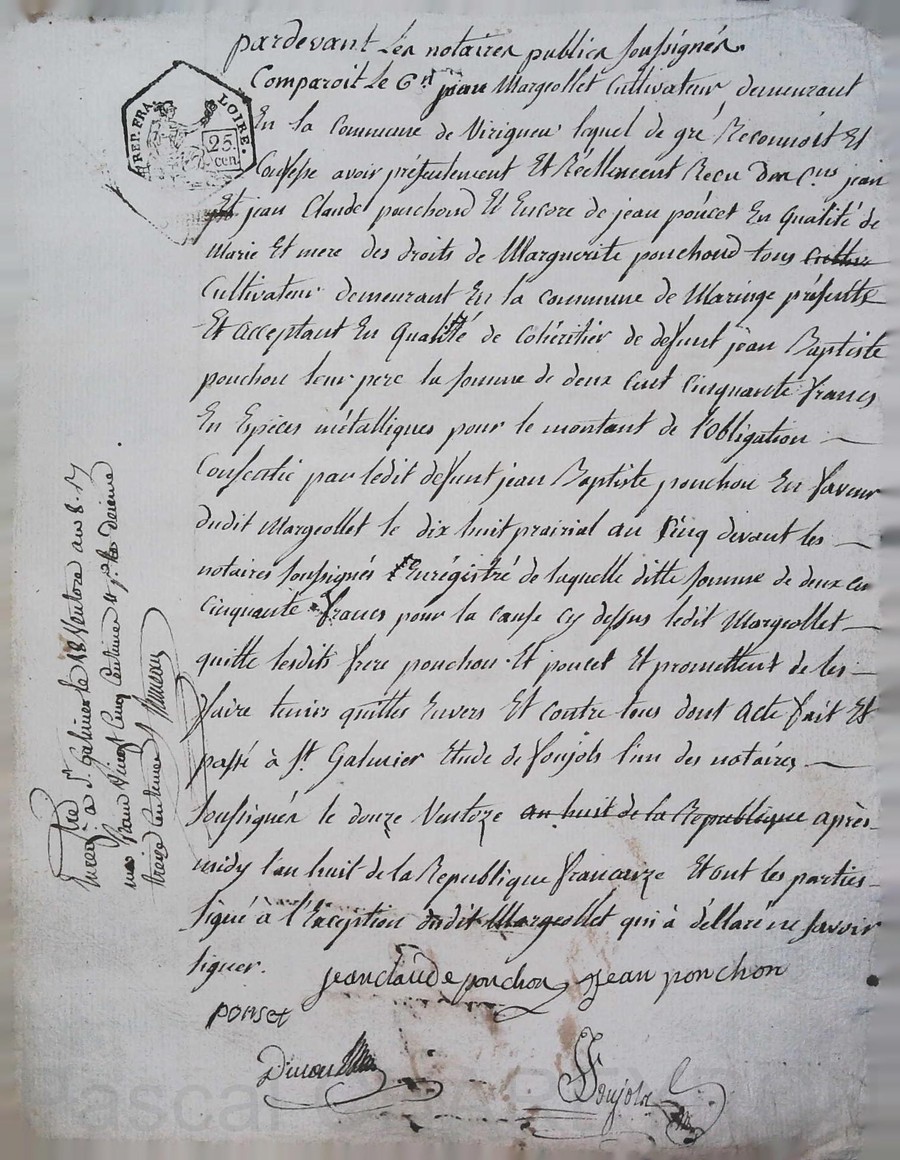 pardevant Les notaires publics soussignés
Comparoit Le Cn jean Margeollet Cultivateur demeurant
En la Commune de Virigneu lequel de gré Reconnoit Et
Confesse avoir présentement Et Réellement Recu Des Cns jean
Et jean Claude ponchond Et Encore de jean poncet En qualité de
Marie Et mere des droits de Marguerite ponchond tous
Cultivateur demeurant En la commune de Maringe présents
Et acceptant En qualité de Cohéritier de defunt jean Baptiste
ponchon leur pere la somme de deux cent Cinquante francs
En Espèces métalliques pour le montant de l'Obligation
Consentie par ledit defunt jean Baptiste ponchon En faveur
dudit Margeollet le dix huit prairial an Cinq devant les
notaires soussignés Enrégistré de laquelle ditte somme de deux cn
cinquante francs pour la cause cy dessus ledit Margeollet
quitte lesdits frere ponchon Et poncet Et promettent de les
faire tenir quittes Envers Et contre tous dont Acte fait Et
passé à St. Galmier Etude de foujols l'un des notaires
soussignés le douze Ventoze an huit de la Republique après
midy l'an huit de la Republique francaize Et ont les parties
signé à l'Exception dudit Margeollet qui à déllaré ne savoir
signer.
jean claude ponchon jean ponchon
ponset
foujols
Enregtré à St. Galmier le 18 Ventose an 8.
Vingt Cinq Centimes
treize Centimes
REP. FRA.
LOIRE.
25
cen.
Pascal